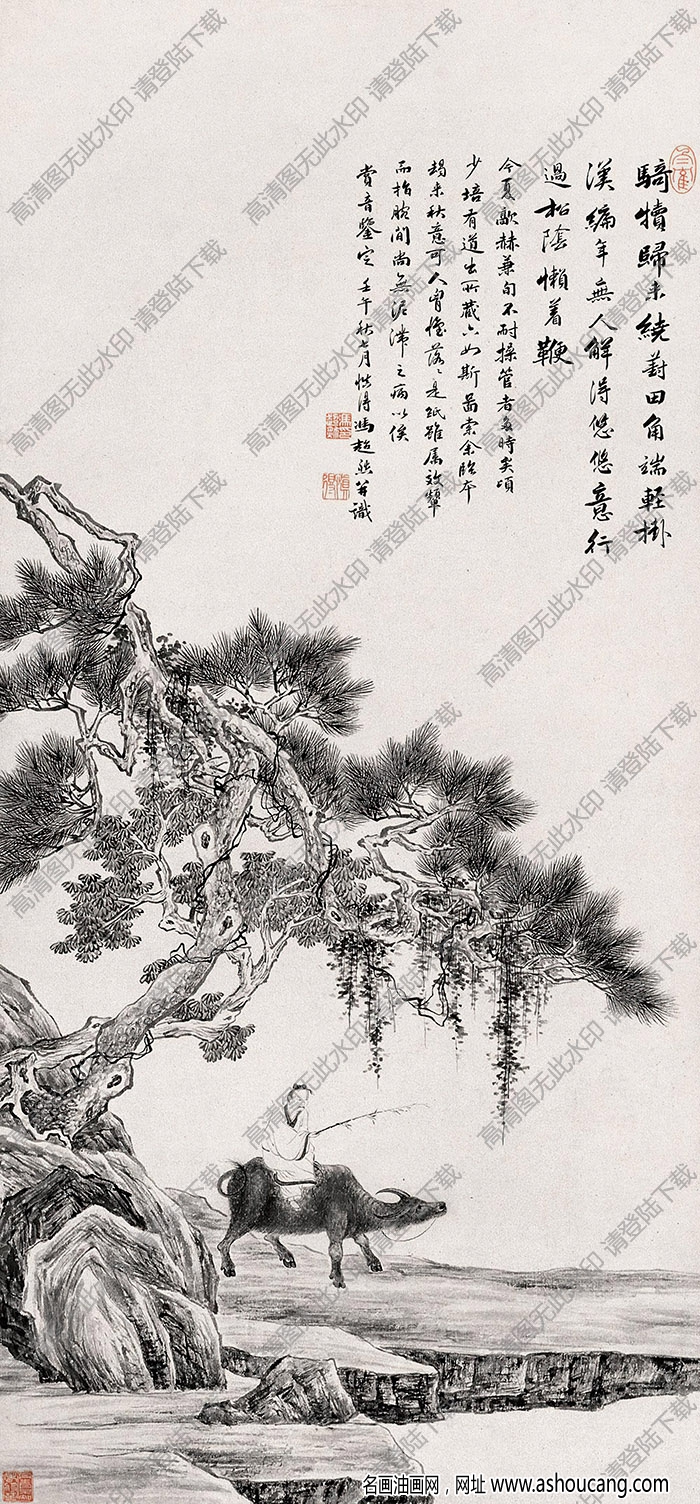 騎犢歸來繞葑田角端輕掛
漢編年無人解得悠悠意行
過松陰懶着鞭
今夏歊赫兼旬不耐操管者多時矣頃
少培有道出所藏六如斯啚索余臨本
朅來秋意可人胷懷落〻是紙雖屬效顰
而指腕間尚無泥滯之病以俟
賞音鑒定 壬午秋七月慎得馮超然并識
高清图无此水印 请登陆下载
名画油画网，网址 www.ashoucang.com